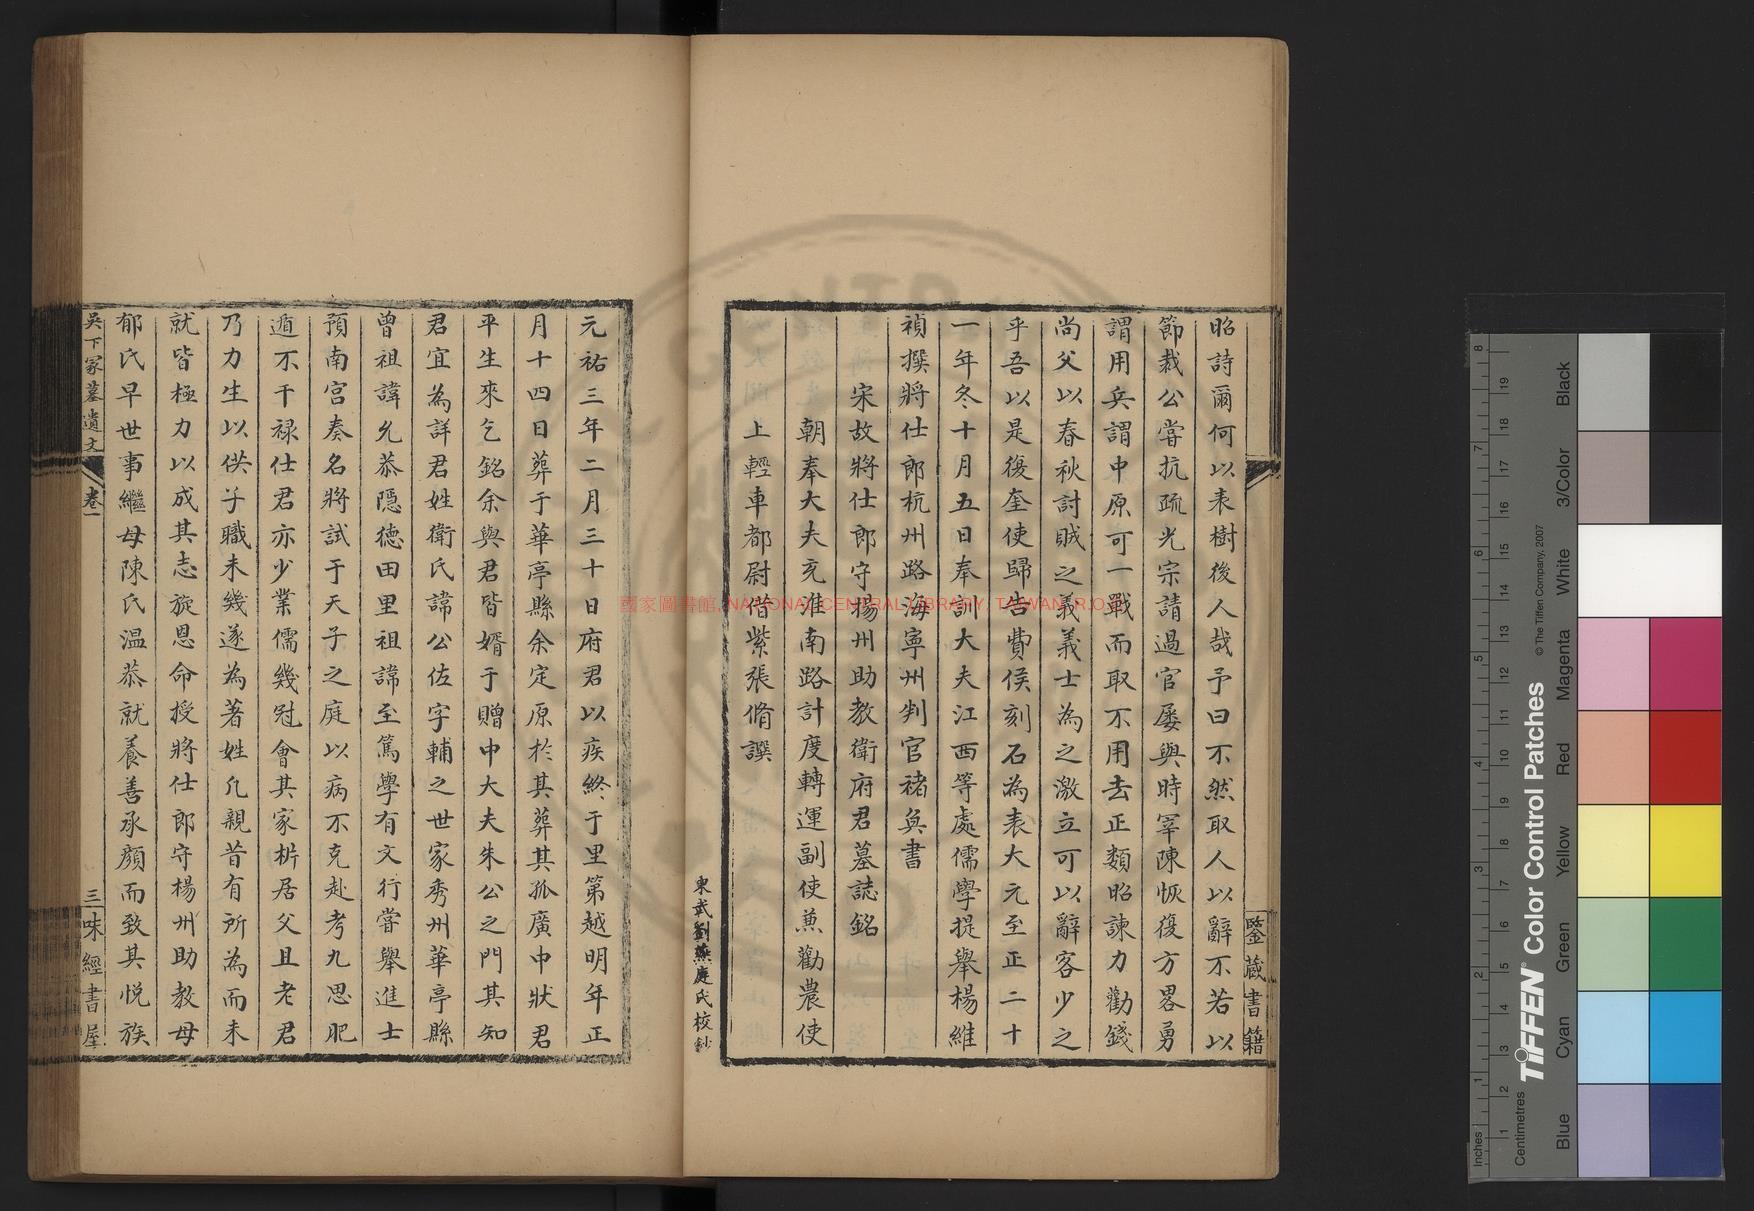 昭詩爾何以表樹後人哉予曰不然取人以辭不若以
節裁公嘗抗疏光宗請過官屡與時宰陳恢復方畧勇
謂用兵謂中原可一戰而取不用去正類昭諫力勸錢
尚父以春秋討賊之義義士為之激立可以辭客少之
乎吾以是復奎使歸告費侯刻石為表大元至正二十
一年冬十月五日奉訓大夫江西等處儒學提舉楊維
禎撰將仕郎杭州路海寧州判官禇奐書
宋故將仕郎守揚州助教衛府君墓誌銘
朝奉大夫充准南路計度轉運副使兼勸農使
上輕車都尉借紫張脩譔
鑒藏書籍
東武劉燕庭氏校鈔
元祐三年二月三十日府君以疾終于里第越明年正
月十四日葬于華亭縣余定原於其葬其孤廣中狀君
平生來乞銘余與君皆婿于贈中大夫朱公之門其知
君宜為詳君姓衛氏諱公佐字輔之世家秀州華亭縣
曾祖諱允恭隱德田里祖諱至篤學有文行嘗舉進士
預南宮奏名將試于天子之庭以病不克赴考九思肥
遁不干禄仕君亦少業儒幾冠會其家析居父且老君
乃力生以供子職未幾遂為著姓凡親昔有所為而未
就皆極力以成其志旋恩命授將仕郎守楊州助教母
郁氏早世事繼母陳氏温恭就養善承顏而致其悅族
吳下冢墓遺文
卷一
三味經書屋
國家圖書館, NATIONAL CENTRAL LIBRARY, TAIWAN, R.O.C
Inches
Centimetres
TIFFEN® Color Control Patches
© The Tiffen Company, 2007
Blue Cyan Green Yellow Red Magenta White 3/Color Black